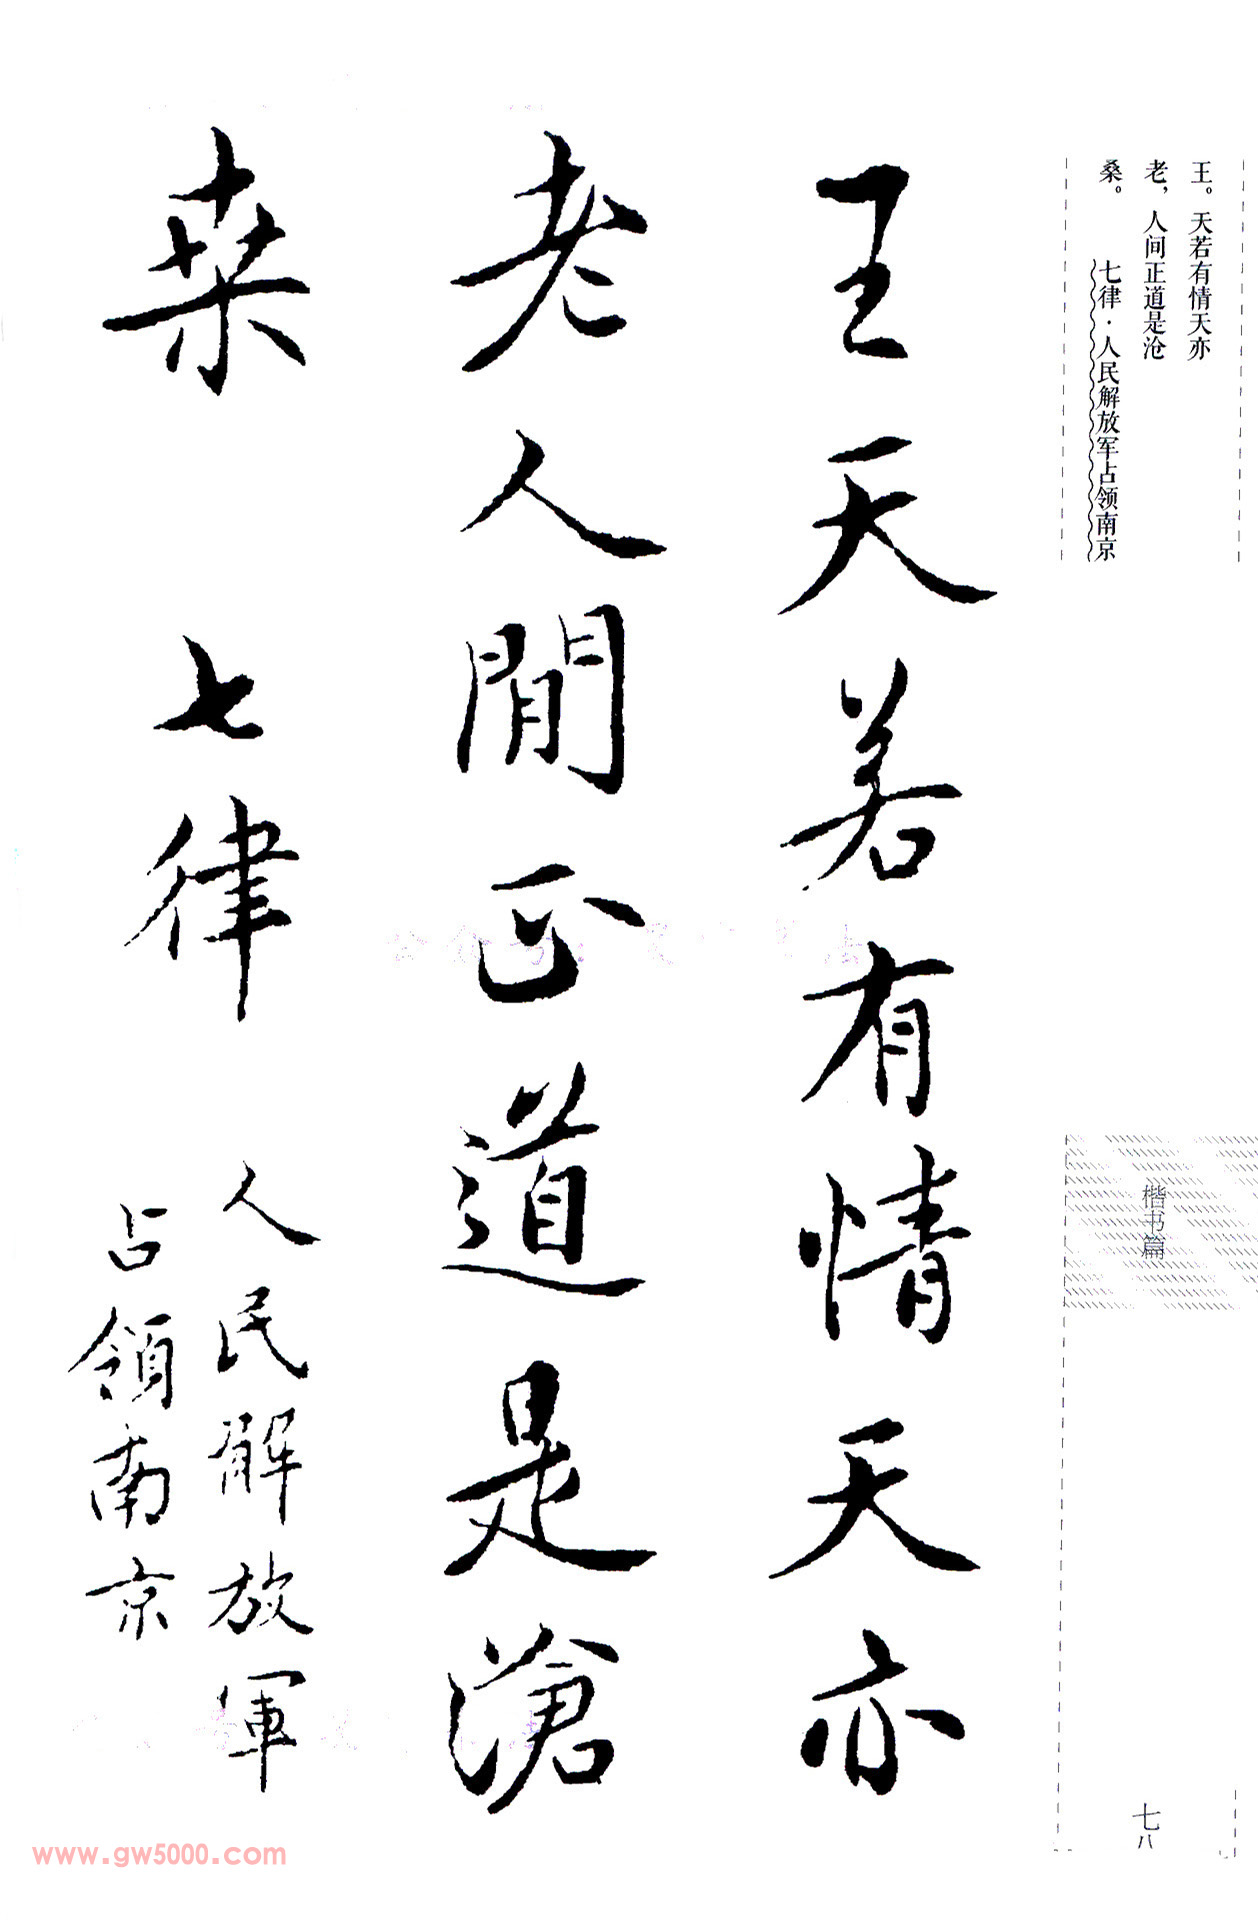 王。天若有情天亦
老，人间正道是沧
桑。 七律·人民解放军占领南京
楷书篇
七八
王天若有情天亦
老人間正道是滄
桒 七律
人民解放軍
占領南京
www.gw5000.com